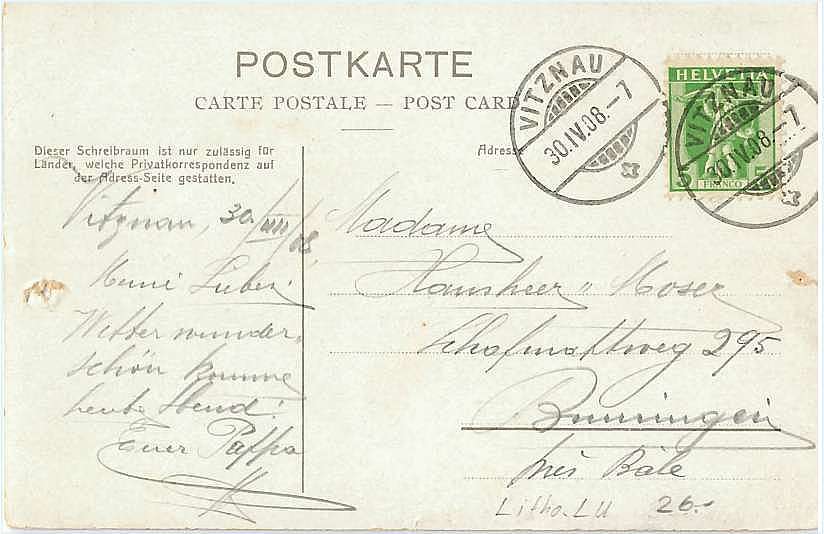 POSTKARTE
CARTE POSTALE — POST CARD
Dieser Schreibraum ist nur zulässig für
Länder, welche Privatkorrespondenz auf
der Adress-Seite gestatten.
Adresse
VITZNAU
30.IV.08.-7
HELVETIA
5
FRANCO
VITZNAU
30.IV.08.-7
Vitznau, 30./08.
Lieben
Wetter wunder-
schön komme
heute Abend!
Euer Pappa
Madame
Hausheer-Moser
Schafmattweg 295
Binningen
près Bâle
Litho. LU 26.-